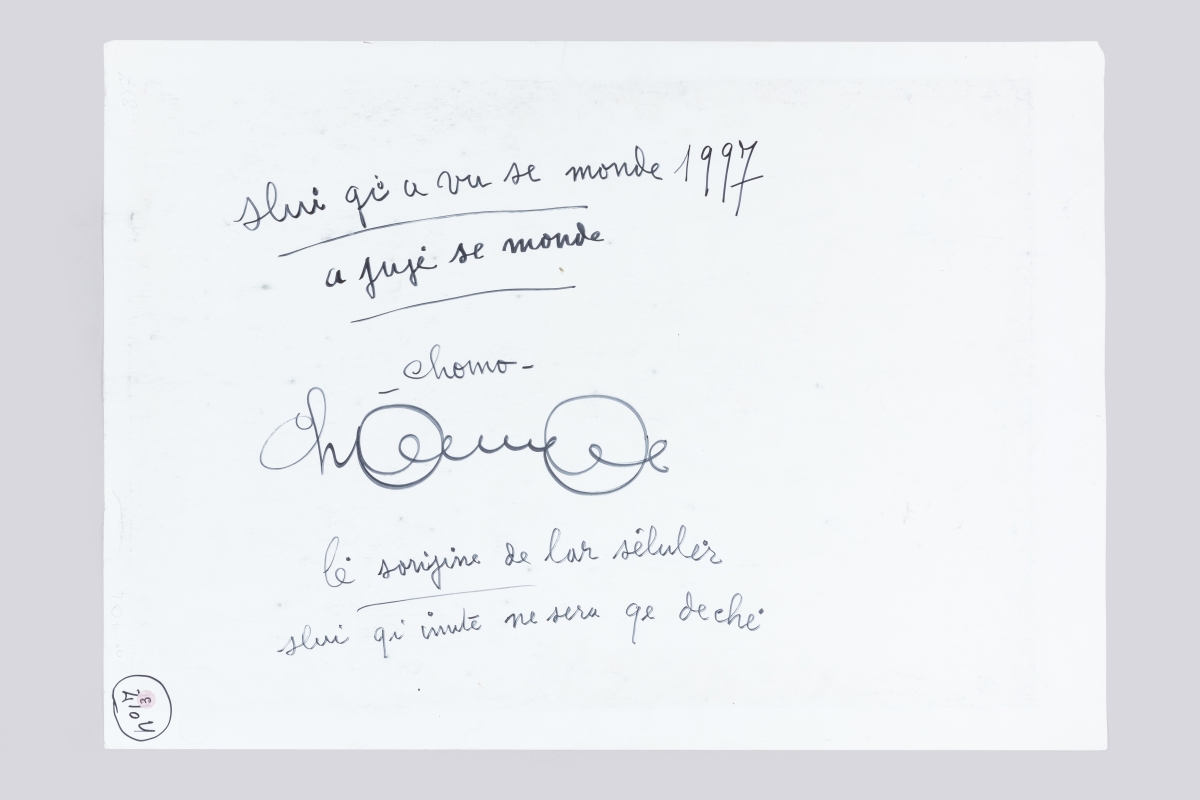 slui qi a vu se monde 1997
a jujé se monde
- chomo -
chomo
lé sorijine de lar séluler
slui qi imite ne sera qe deché